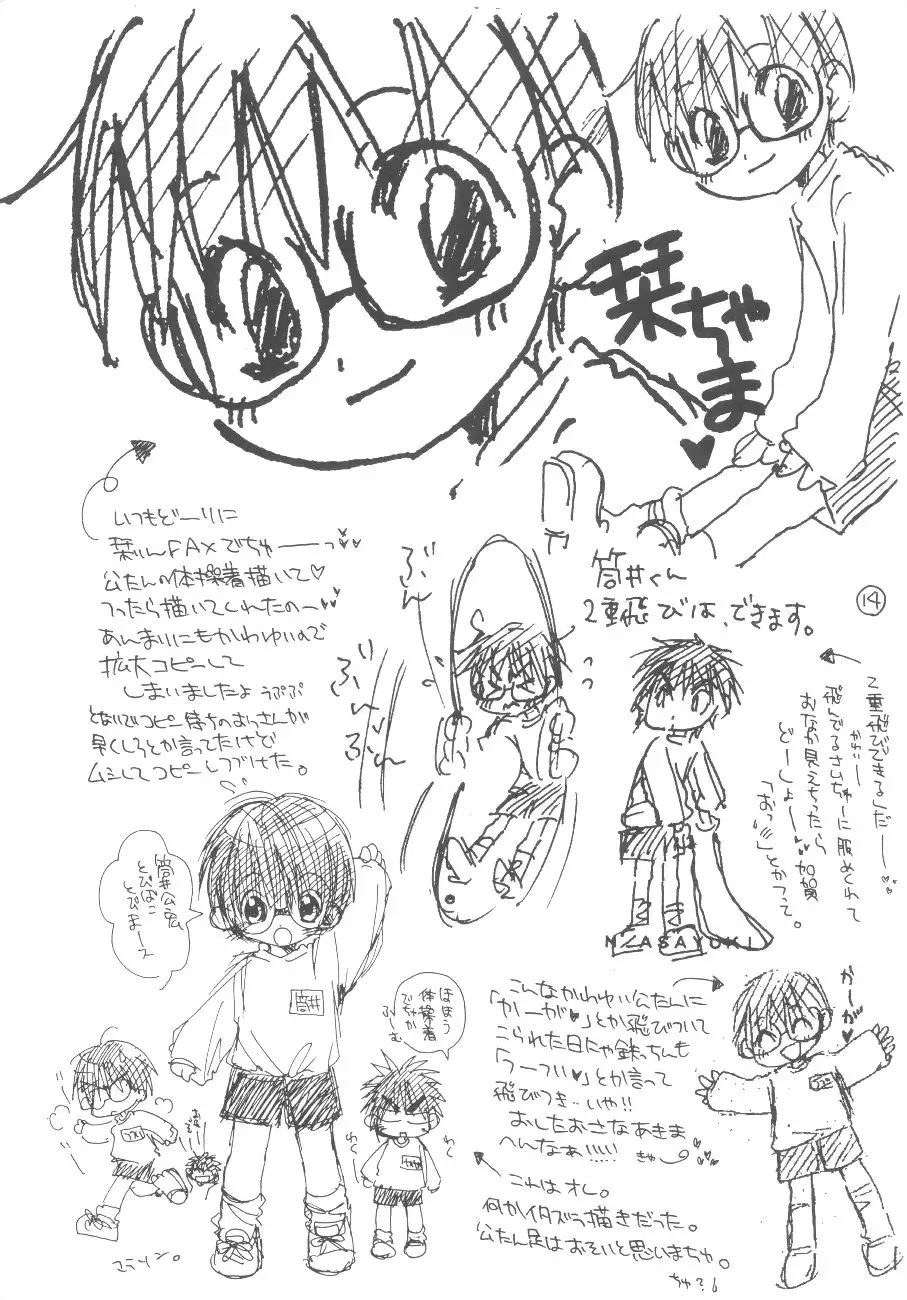 栞ちゃま♥
いつもどーりに
栞りんFAXでちゅーーっ♥♥
公たんの体操着描いて♡
つったら描いてくれたのー♥♥
あんまいにもかわゆいので
拡大コピーして
しまいましたよ うぷぷ
となりでコピー待ちのおっさんが
早くしろとか言ってたけど
ムシしてコピーしつづけた。
ぶん
ぶん
ぶん
ぶん
筒井くん
2重飛びは、できます。
14
2重飛びできる」だーー♥♥
かわいー
飛んでるさいちゅーに服めくれて
おなか見えちったら
どーしょーー♥加賀
「おっ!!」とかつって。
MASAYUKI
筒井公宏
とびばこ
とびまース
筒井
ほほう
体操着
でちゅか
ふーむ
わく
わく
マラソン。
こんなかわゆい公たんに
「かーが♥」とか飛びついて
こられた日にゃ鉄っちんも
「つーつい♥」とか言って
飛びつき‥いや!!
おしたおさなあきま
へんなぁ!!!!! きゃー
かーが♥
これはオレ。
何かイタズラ描きだった。
公たん足はおそいと思いまちゅ。
ちゅ?